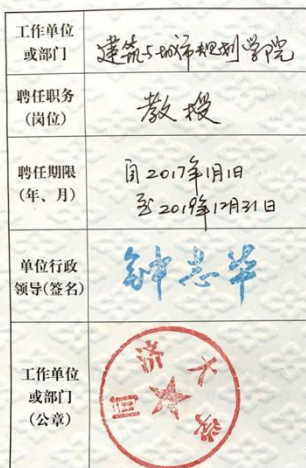 工作单位
或部门
建筑与城市规划学院
聘任职务
(岗位)
教授
聘任期限
(年、月)
自2017年1月1日
至2019年12月31日
单位行政
领导(签名)
钟志华
工作单位
或部门
(公章)
同济大学